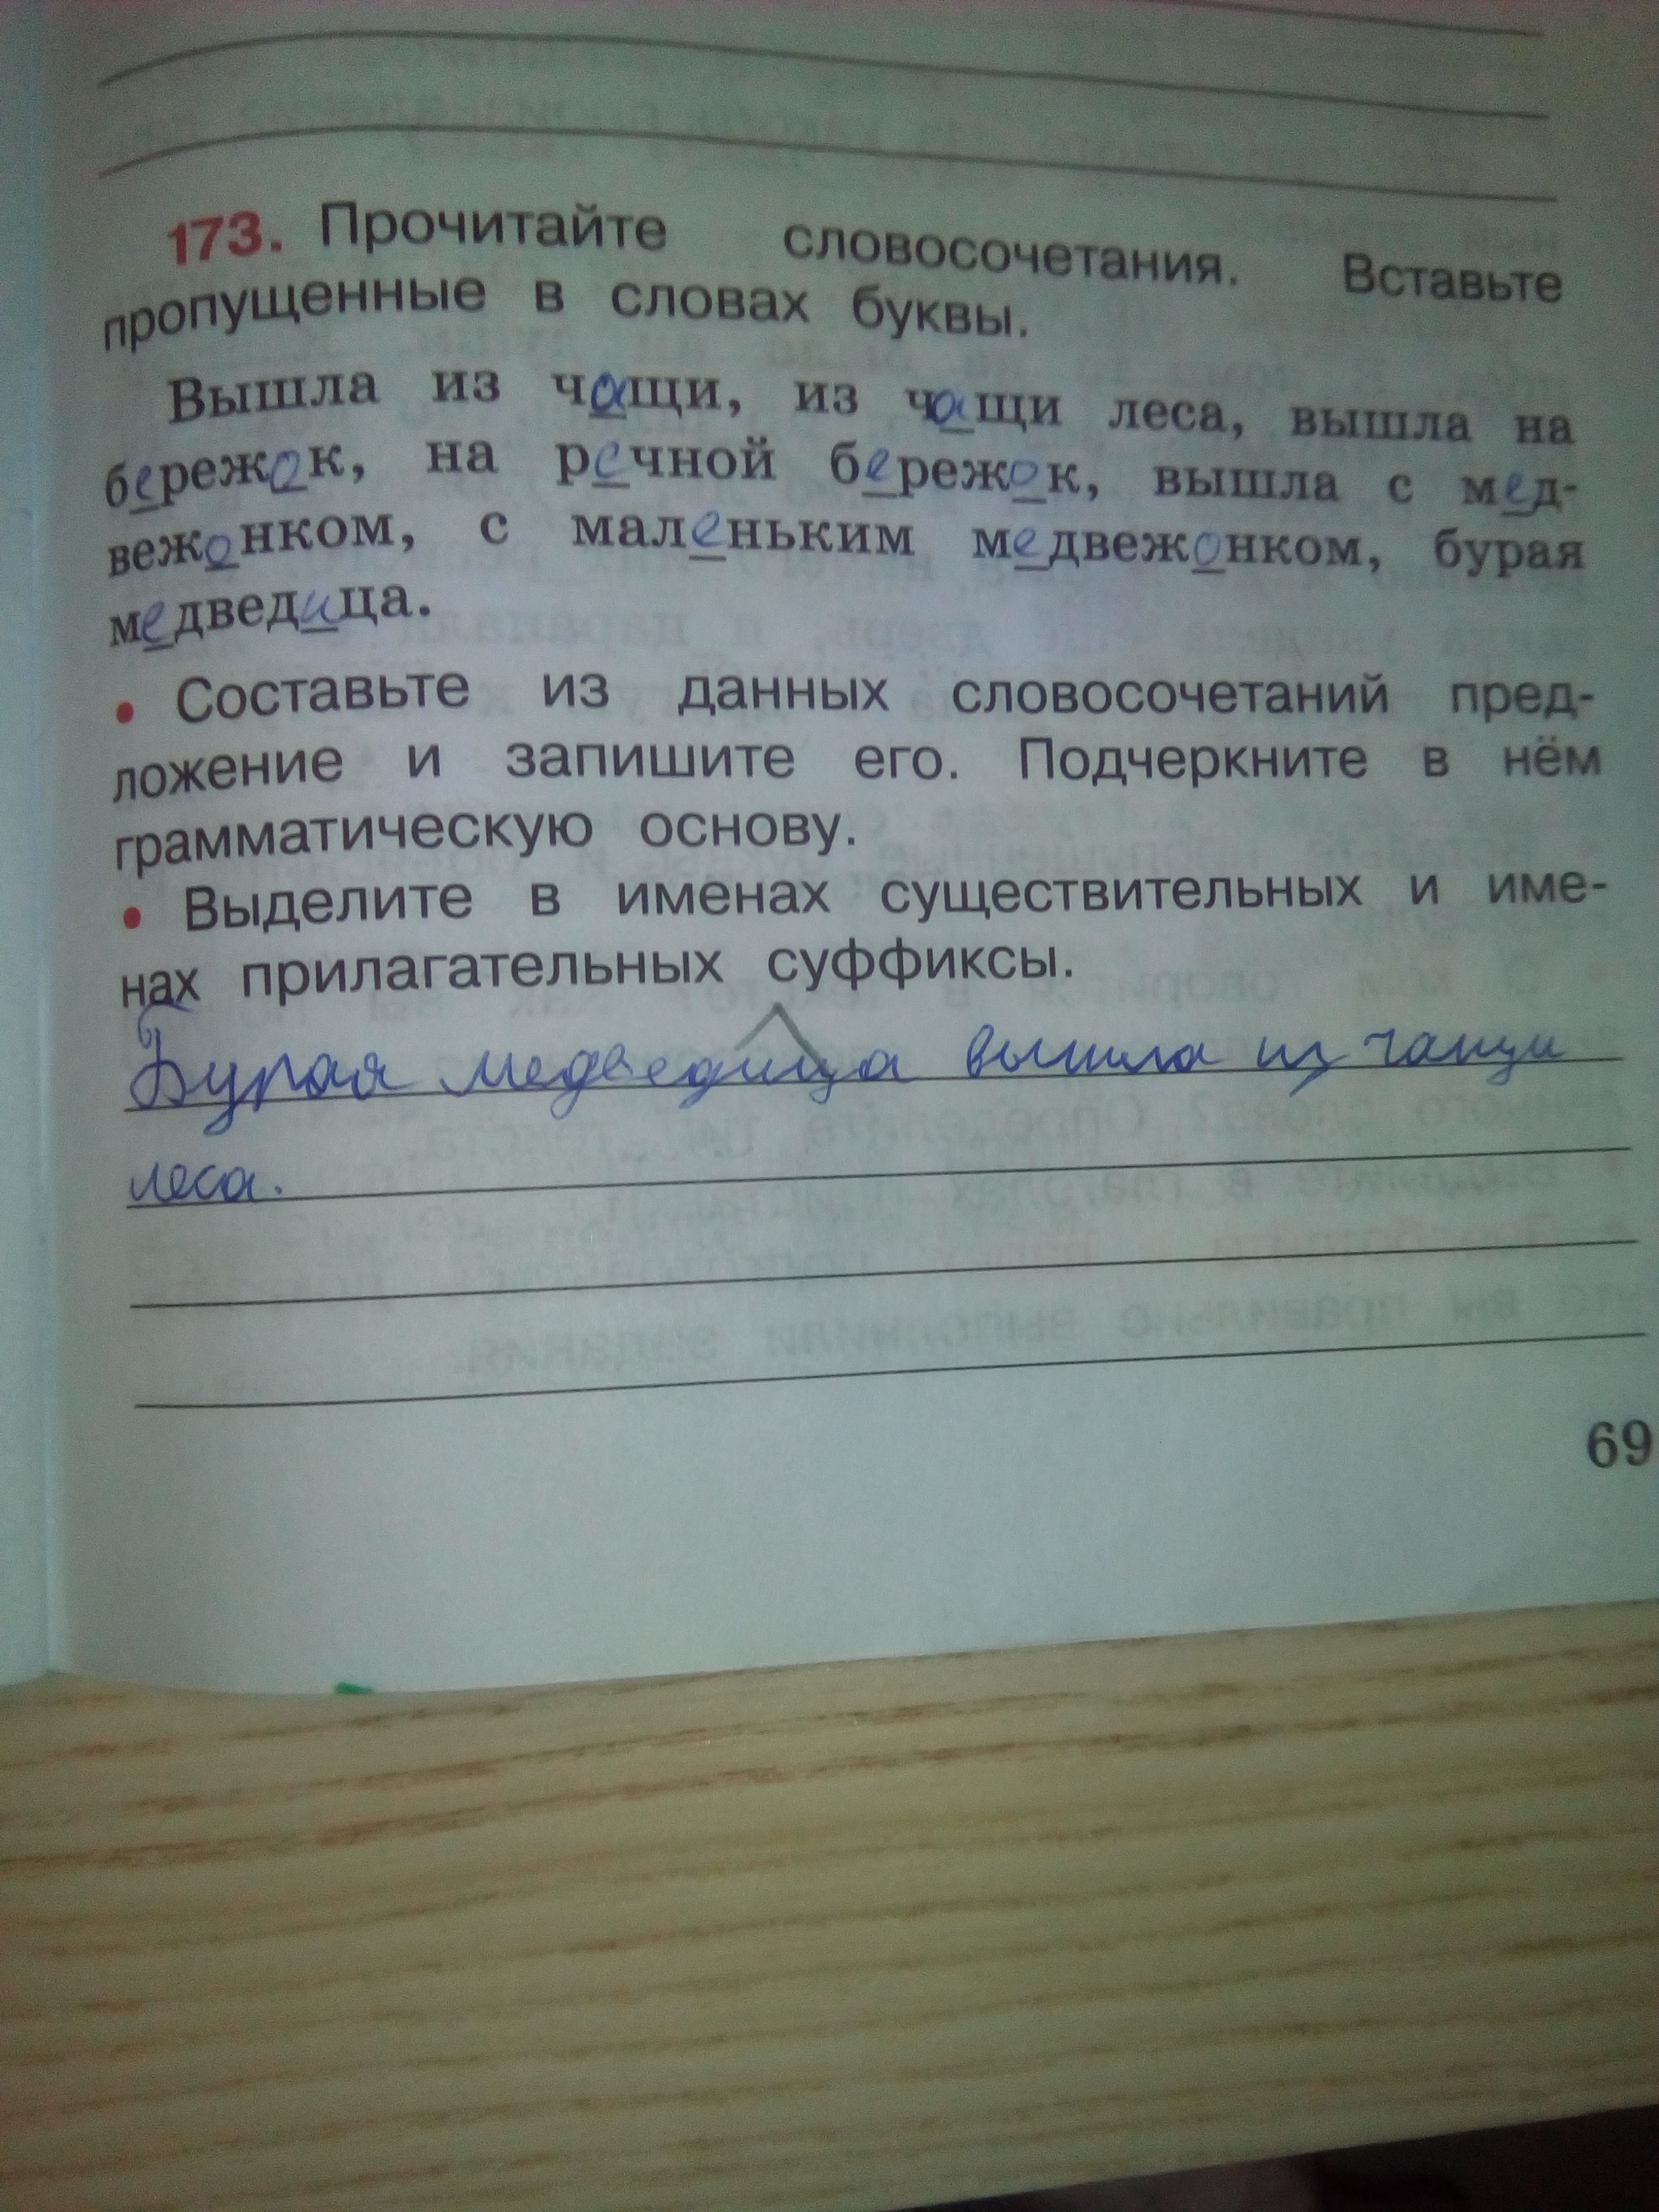 173. Прочитайте словосочетания. Вставьте
пропущенные в словах буквы.
Вышла из чащи, из чащи леса, вышла на
бережок, на речной бережок, вышла с мед-
вежонком, с маленьким медвежонком, бурая
медведица.
• Составьте из данных словосочетаний пред-
ложение и запишите его. Подчеркните в нём
грамматическую основу.
• Выделите в именах существительных и име-
нах прилагательных суффиксы.
Бурая медведица вышла из чащи
леса.
69